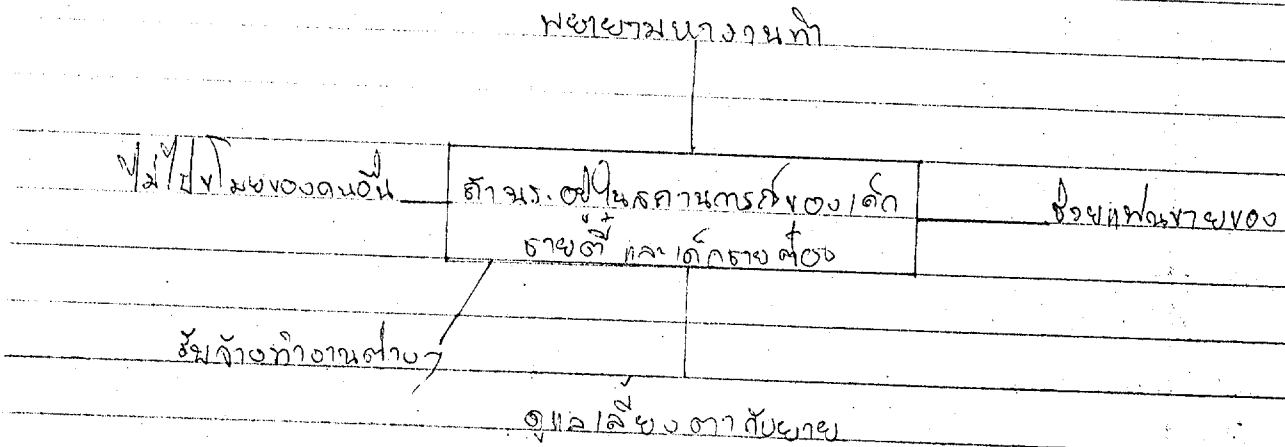 พยายามหางานทำ
ไม่ไปขโมยของคนอื่น
ถ้า นร. อยู่ในสถานการณ์ของเด็ก
ชายตี๋ และเด็กชายต๋อง
ช่วยแฟนขายของ
รับจ้างทำงานต่างๆ
ดูแลเลี้ยงตากับยาย